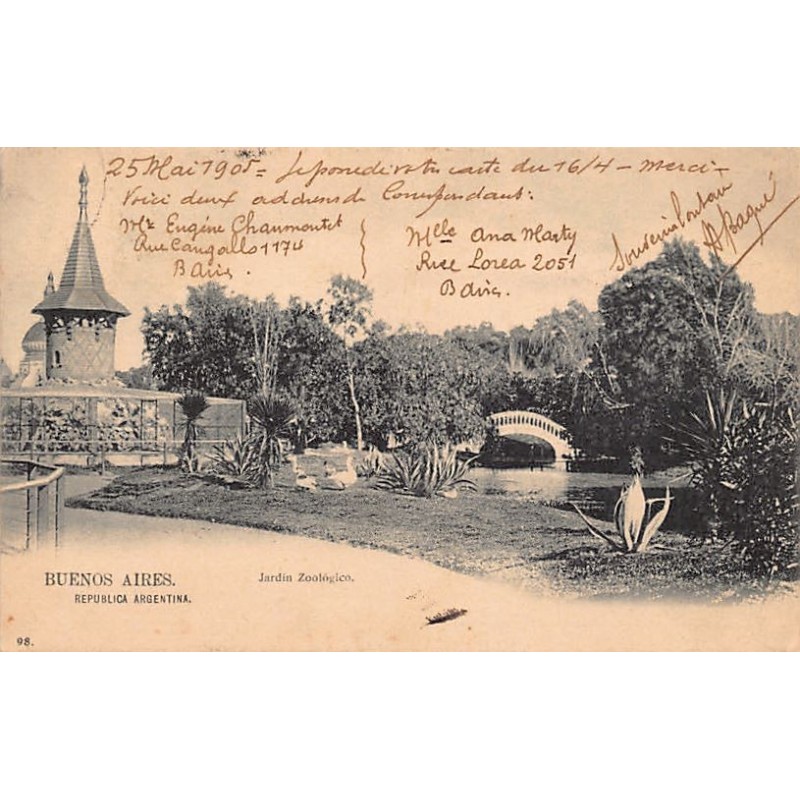 25 Mai 1905 = Je possède votre carte du 16/4 - Merci -
Voici deux address de Correspondant:
Mr Eugène Chaumontet
Rue Cangallo 1174
BAires.
Mlle Ana Marty
Rue Lorea 2051
BAires.
Souvenir
A Baqué
BUENOS AIRES.
REPUBLICA ARGENTINA.
Jardín Zoológico.
98.